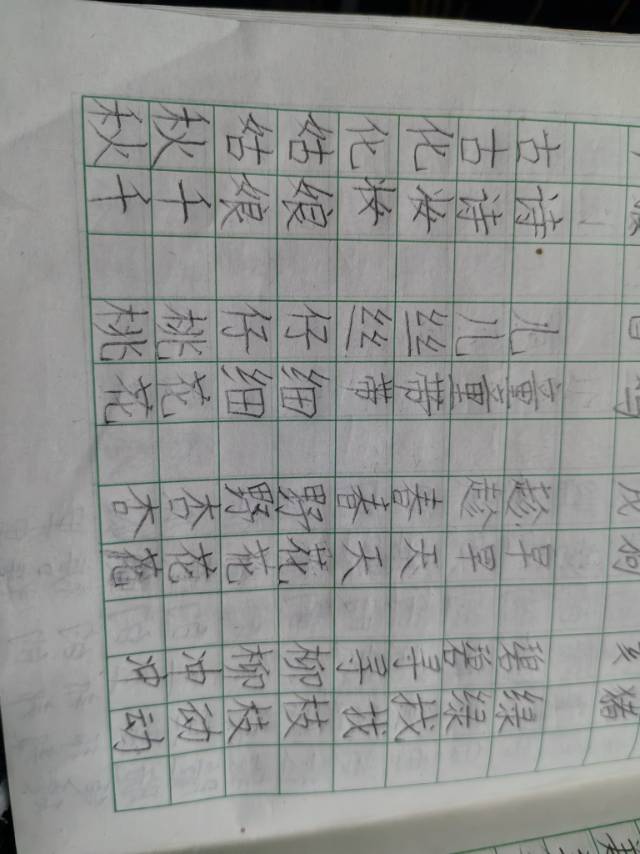 戌狗 亥猪
古诗 儿童 趁早 碧绿
古诗 儿童 趁早 碧绿
化妆 丝带 春天 寻找
化妆 丝带 春天 寻找
姑娘 仔细 野花 柳枝
姑娘 仔细 野花 柳枝
秋千 桃花 杏花 冲动
秋千 桃花 杏花 冲动